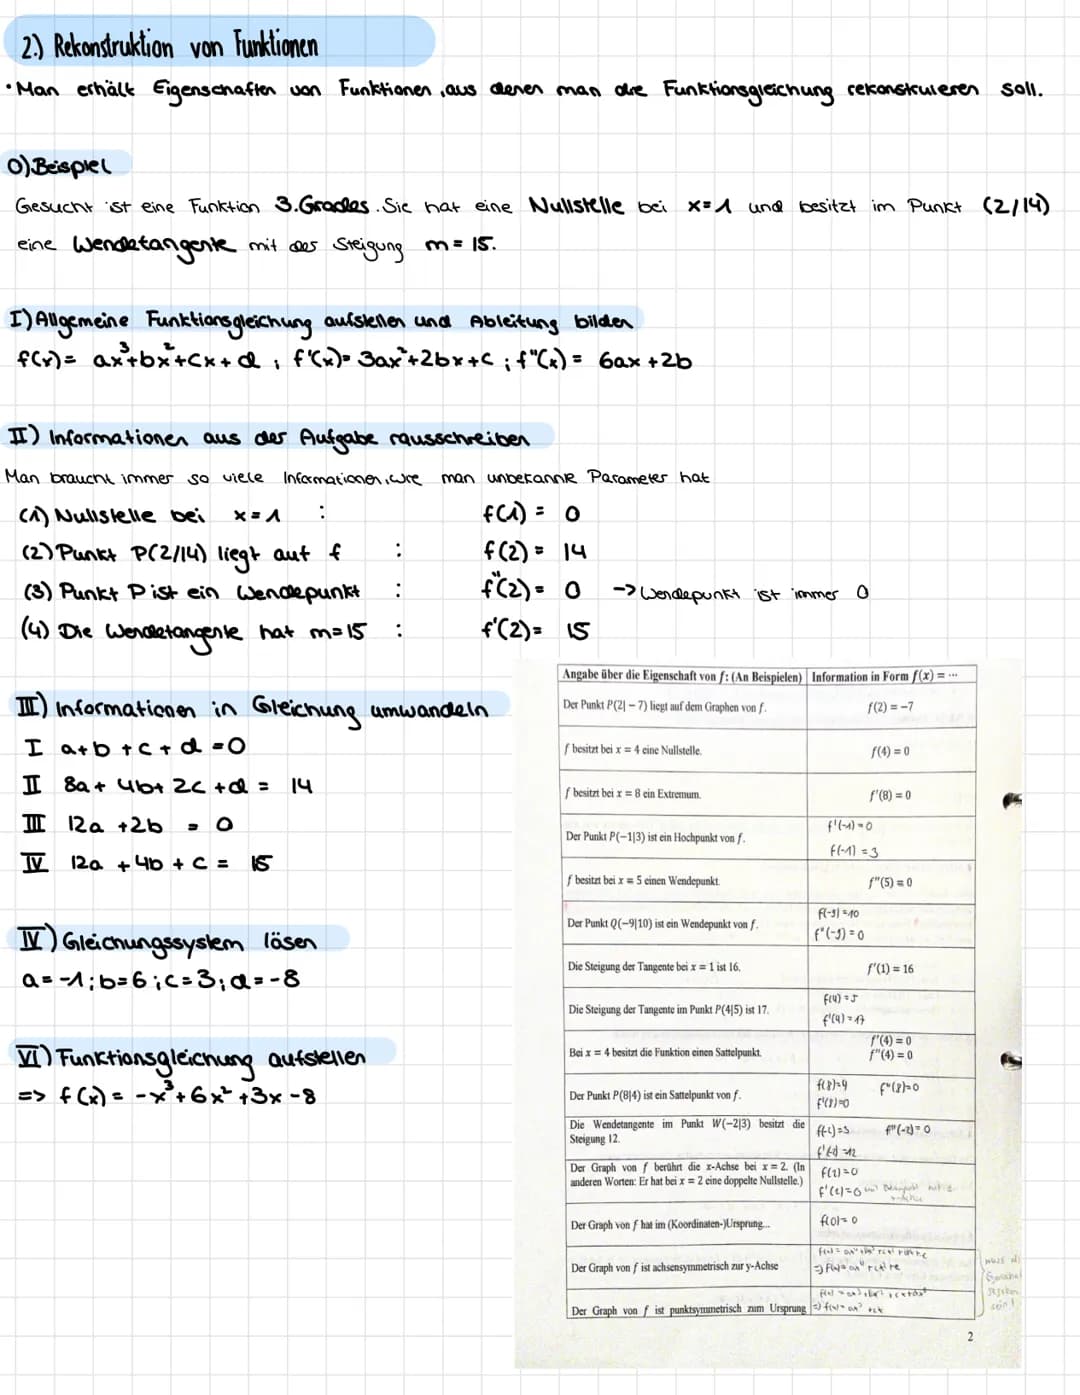 2.) Rekonstruktion von Funktionen
• Man erhält Eigenschaften von Funktionen, aus denen man die Funktionsgleichung rekonstruieren soll.
0) Beispiel
Gesucht ist eine Funktion 3.Grades. Sie hat eine Nullstelle bei x=1 und besitzt im Punkt (2/14)
eine Wendetangente mit der Steigung m = 15.
I) Allgemeine Funktionsgleichung aufstellen und Ableitung bilden
f(x) = ax³+bx²+cx+d ; f'(x)= 3ax²+2bx+c ; f''(x) = 6ax+2b
II) Informationen aus der Aufgabe rausschreiben
Man braucht immer so viele Informationen, wie man unbekannte Parameter hat
(1) Nullstelle bei x=1 : f(1) = 0
(2) Punkt P(2/14) liegt auf f : f(2) = 14
(3) Punkt P ist ein Wendepunkt : f''(2) = 0 -> Wendepunkt ist immer 0
(4) Die Wendetangente hat m=15 : f'(2) = 15
III) Informationen in Gleichung umwandeln
I a+b+c+d =0
II 8a+4b+2c+d = 14
III 12a +2b = 0
IV 12a +4b + c = 15
IV) Gleichungssystem lösen
a=-1; b=6; c=3; d=-8
VI) Funktionsgleichung aufstellen
=> f(x) = -x³+6x²+3x-8
Angabe über die Eigenschaft von f: (An Beispielen) Information in Form f(x) = ···
Der Punkt P(2| − 7) liegt auf dem Graphen von f. f(2) = −7
f besitzt bei x = 4 eine Nullstelle. f(4) = 0
f besitzt bei x = 8 ein Extremum. f'(8) = 0
Der Punkt P(−1|3) ist ein Hochpunkt von f. f'(-1)=0
f(-1) =3
f besitzt bei x = 5 einen Wendepunkt. f''(5) = 0
Der Punkt Q(−9|10) ist ein Wendepunkt von f. f(-9)=10
f''(-9)=0
Die Steigung der Tangente bei x = 1 ist 16. f'(1) = 16
Die Steigung der Tangente im Punkt P(4|5) ist 17. f(4)=5
f'(4)=17
Bei x = 4 besitzt die Funktion einen Sattelpunkt. f'(4) = 0
f''(4) = 0
Der Punkt P(8|4) ist ein Sattelpunkt von f. f(8)=4 f''(8)=0
f'(8)=0
Die Wendetangente im Punkt W(−2|3) besitzt die
Steigung 12. f(-2)=3 f''(-2)=0
f'(-2)=12
Der Graph von f berührt die x-Achse bei x = 2. (In
anderen Worten: Er hat bei x = 2 eine doppelte Nullstelle.) f(2)=0
f'(2)=0
Der Graph von f hat im (Koordinaten-)Ursprung... f(0)=0
Der Graph von f ist achsensymmetrisch zur y-Achse
Der Graph von f ist punktsymmetrisch zum Ursprung
2